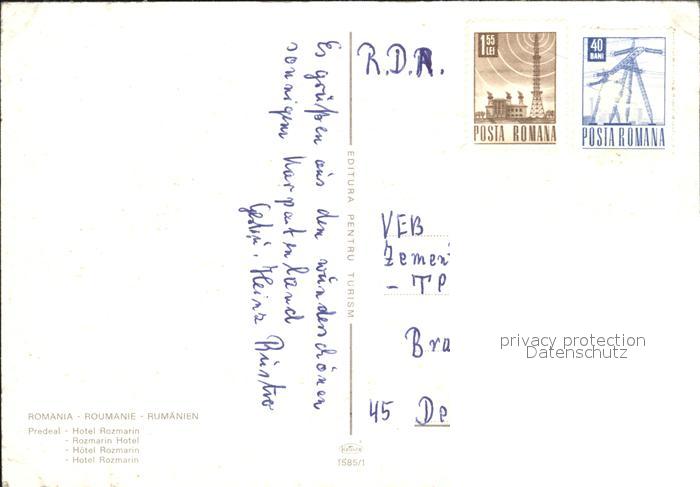 Es grüßen aus dem wunderschönen
sonnigen Karpatenland
Heinz
EDITURA PENTRU TURISM
R.D.R.
1 55
LEI
POSTA ROMANA
40
BANI
POSTA ROMANA
VEB
Zemen
- TP
Bra
45 De
privacy protection
Datenschutz
ROMANIA - ROUMANIE - RUMÄNIEN
Predeal - Hotel Rozmarin
- Rozmarin Hotel
- Hôtel Rozmarin
- Hotel Rozmarin
1585/1